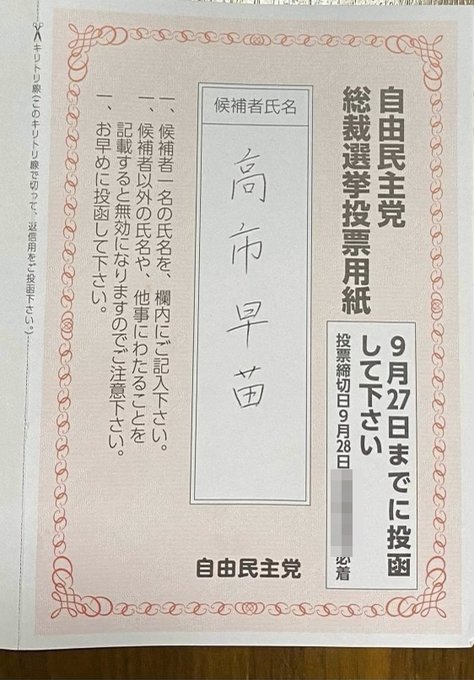 自由民主党
総裁選挙投票用紙
9月27日までに投函
して下さい
投票締切日9月28日
必着
候補者氏名
高市早苗
一、候補者一名の氏名を、欄内にご記入下さい。
一、候補者以外の氏名や、他事にわたることを
記載すると無効になりますのでご注意下さい。
一、お早めに投函して下さい。
自由民主党
キリトリ線(このキリトリ線で切って、返信用をご投函下さい。)